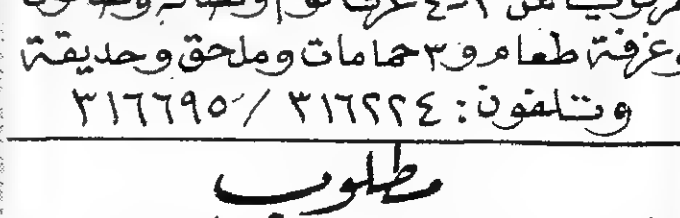 وغرفة طعام و٣ حمامات وملحق وحديقة
وتلفون : ٣١٦٢٢٤ / ٣١٦٦٩٥
مطلوب